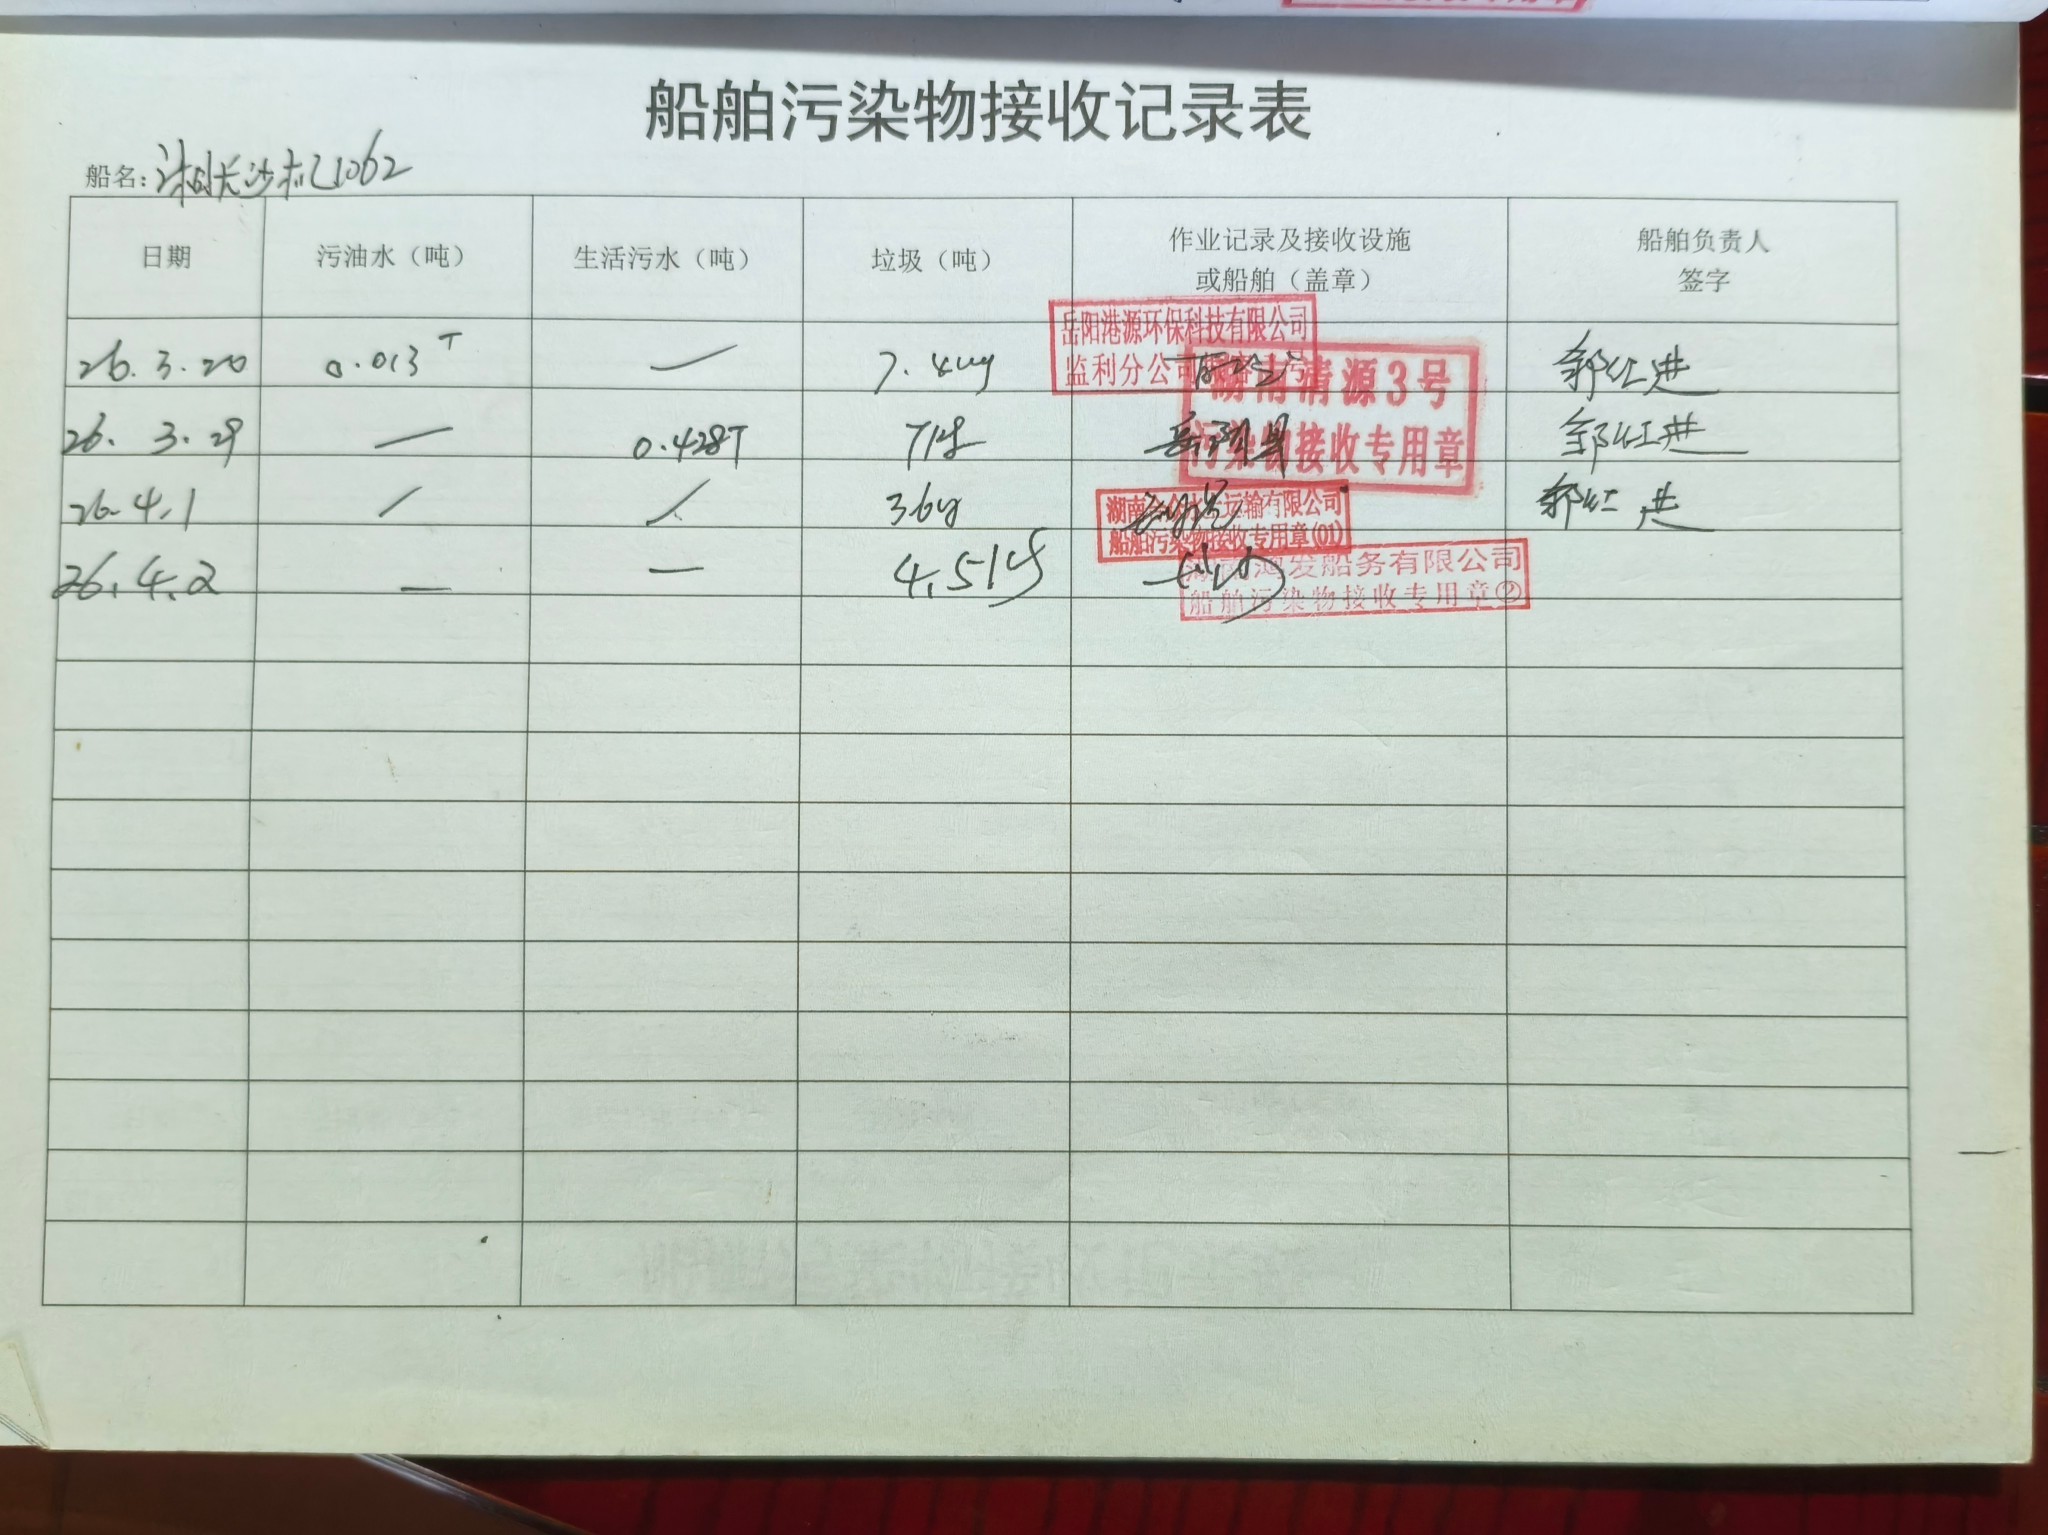 船舶污染物接收记录表
船名: 湘长沙机1062
日期 污油水（吨） 生活污水（吨） 垃圾（吨） 作业记录及接收设施或船舶（盖章） 船舶负责人签字
岳阳港源环保科技有限公司
监利分公司
26.3.20 0.013T — 7.4kg 郭红进
清源3号
污染物接收专用章
26.3.29 — 0.428T 7kg 郭红进
湖南 运输有限公司
船舶污染物接收专用章(01)
26.4.1 / / 3.6kg 郭红进
发船务有限公司
船舶污染物接收专用章②
26.4.2 — — 4.51kg